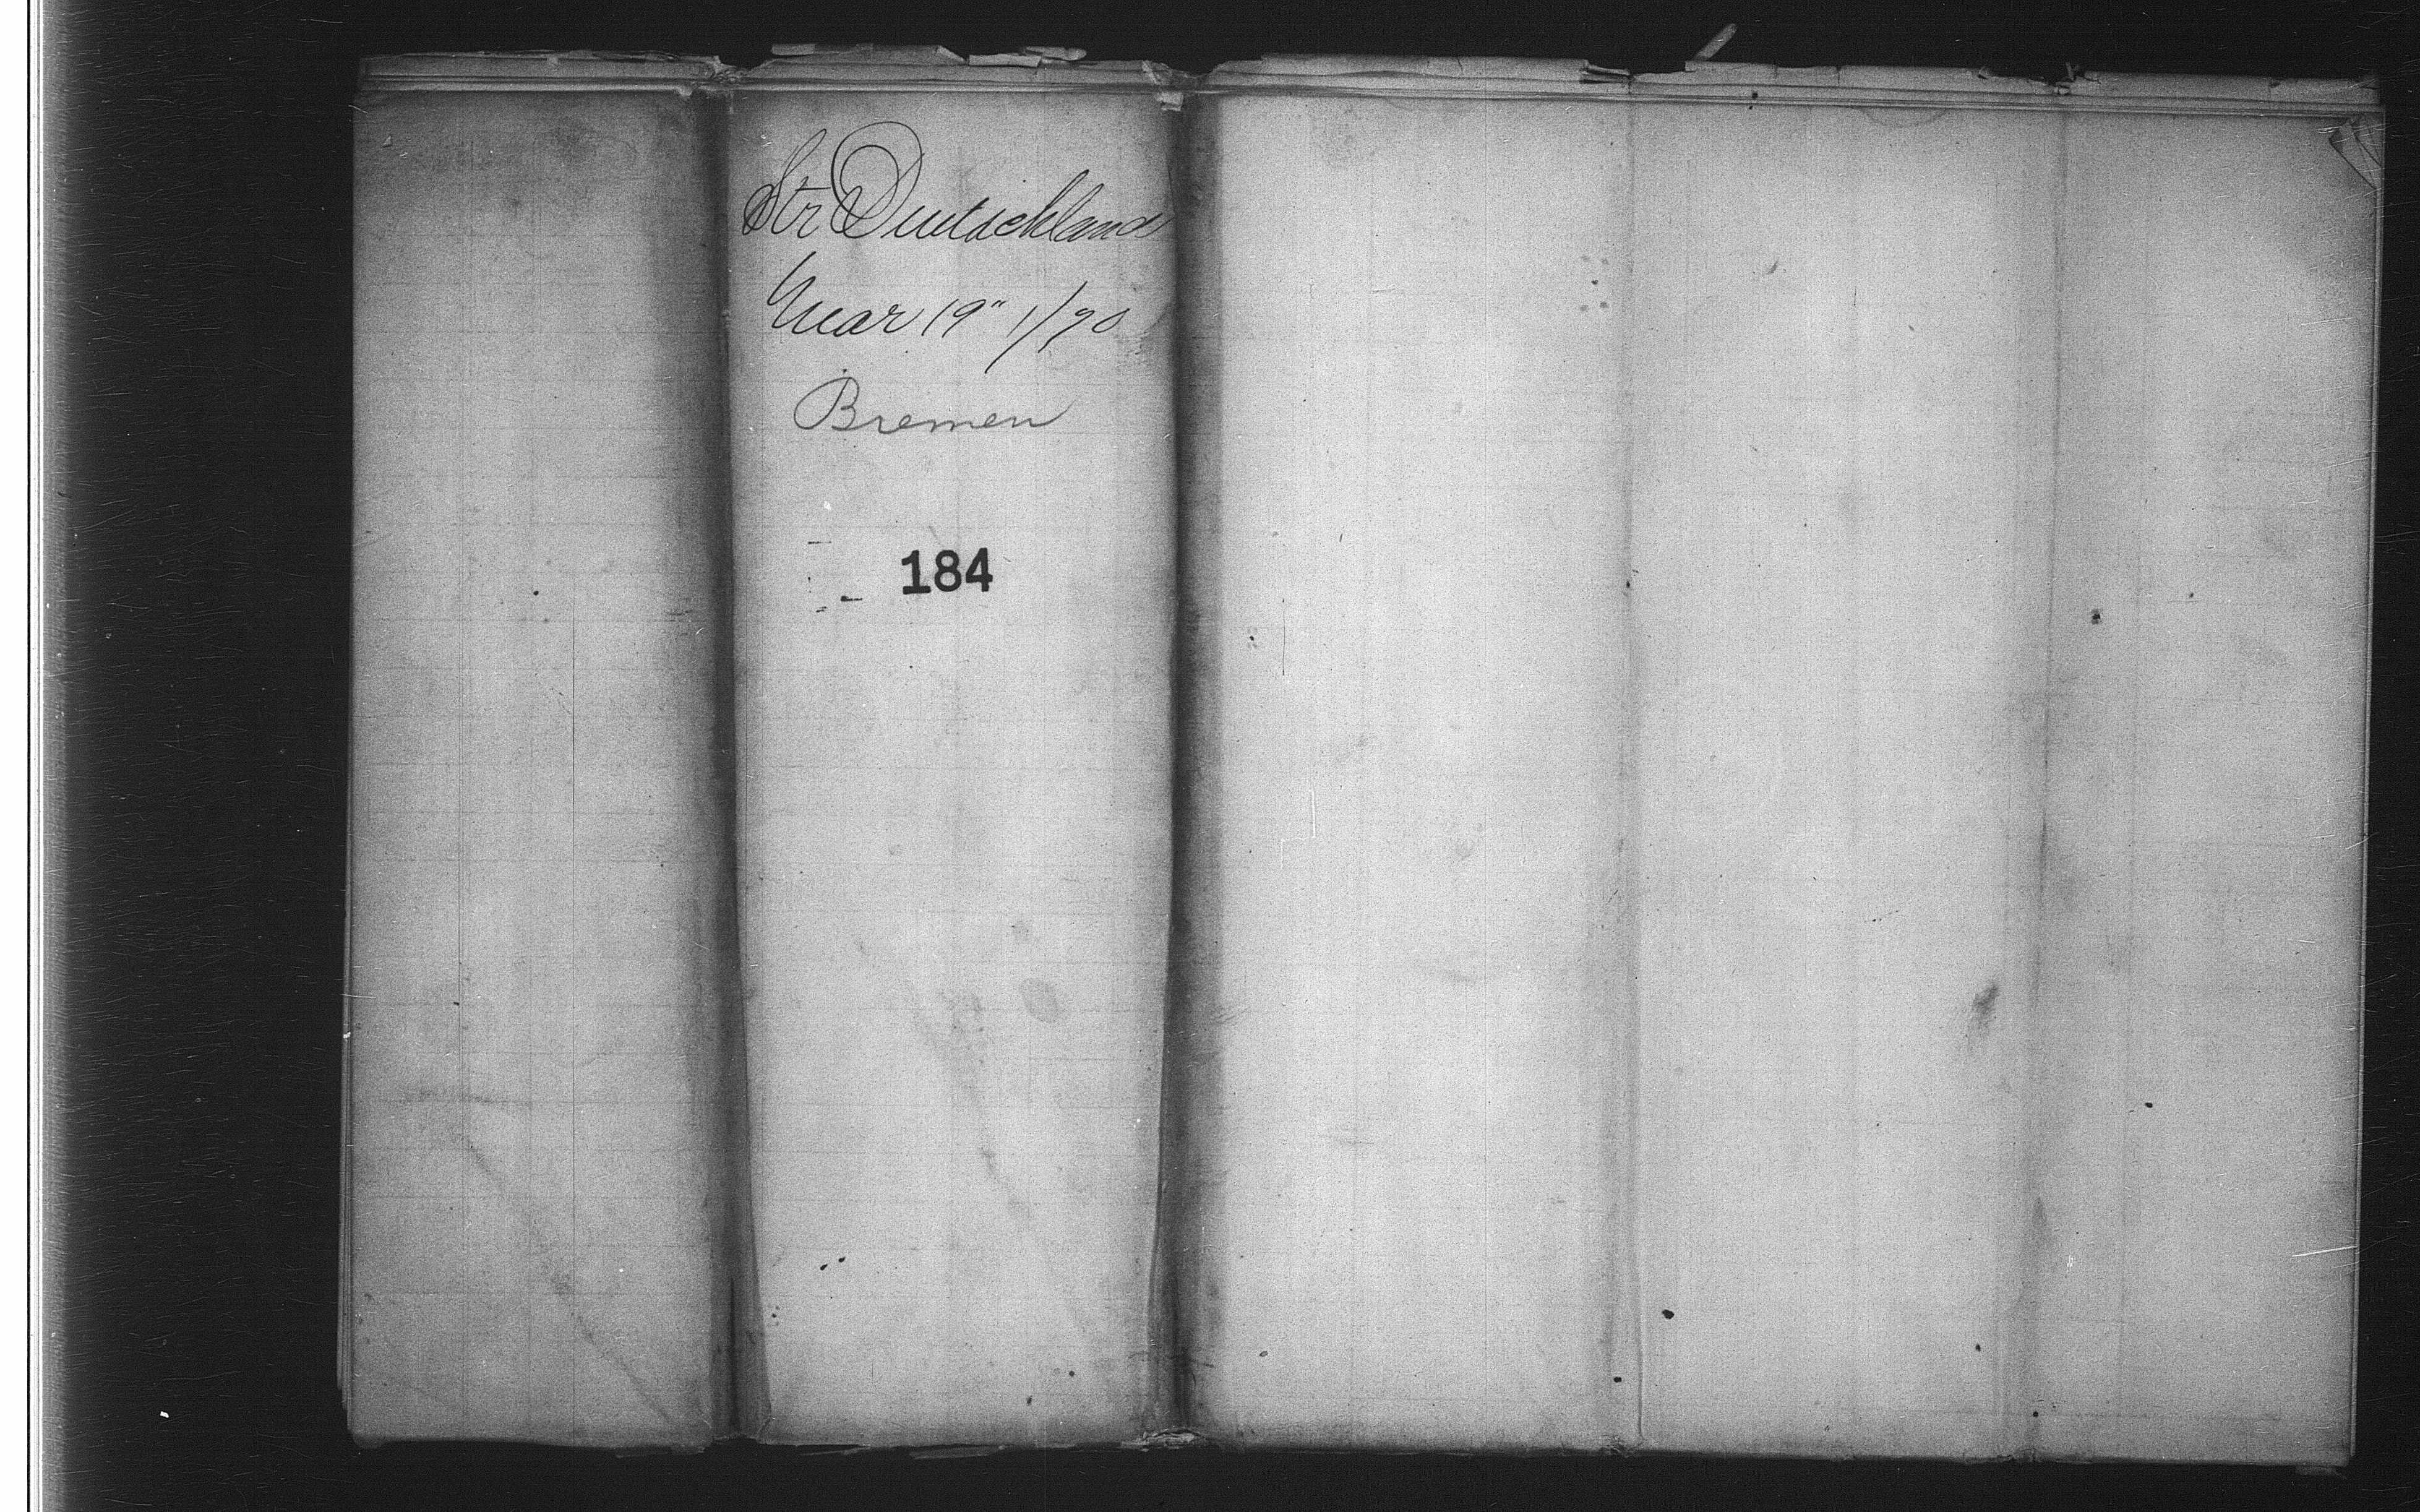 Str Deutschland
Mar 19" 1/70
Bremen
184